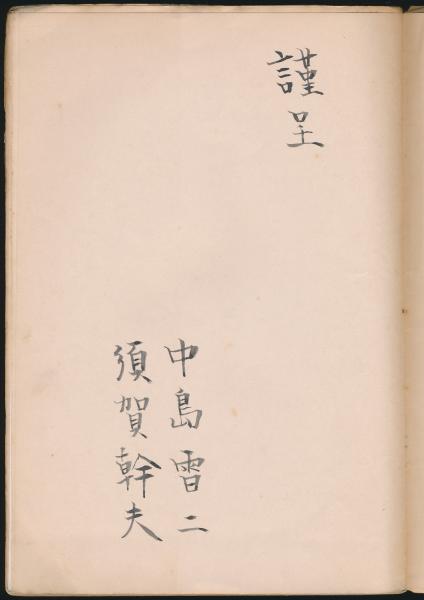 謹呈
中島雷二
須賀幹夫